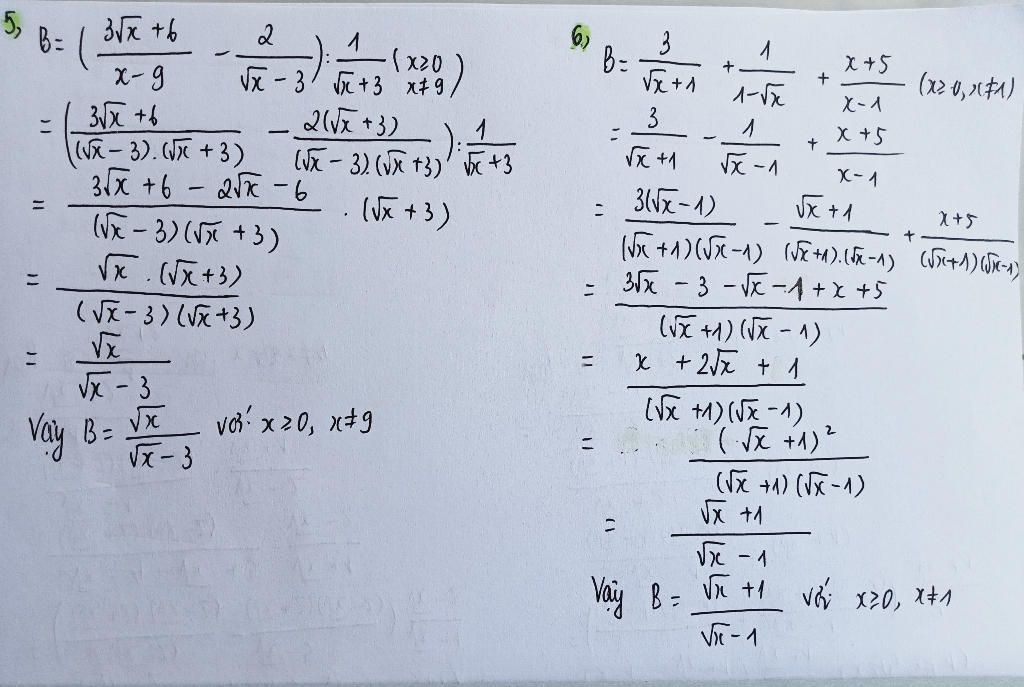 5, B = ( (3√x + 6)/(x - 9) - 2/(√x - 3) ) : 1/(√x + 3) (x ≥ 0 x ≠ 9)
= ( (3√x + 6)/((√x - 3).(√x + 3)) - 2(√x + 3)/((√x - 3).(√x + 3)) ) : 1/(√x + 3)
= (3√x + 6 - 2√x - 6)/((√x - 3)(√x + 3)) . (√x + 3)
= √x . (√x + 3)/((√x - 3)(√x + 3))
= √x/(√x - 3)
Vậy B = √x/(√x - 3) với x ≥ 0, x ≠ 9
6, B = 3/(√x + 1) + 1/(1 - √x) + (x + 5)/(x - 1) (x ≥ 0, x ≠ 1)
= 3/(√x + 1) - 1/(√x - 1) + (x + 5)/(x - 1)
= 3(√x - 1)/((√x + 1)(√x - 1)) - (√x + 1)/((√x + 1).(√x - 1)) + (x + 5)/((√x + 1)(√x - 1))
= (3√x - 3 - √x - 1 + x + 5)/((√x + 1)(√x - 1))
= (x + 2√x + 1)/((√x + 1)(√x - 1))
= (√x + 1)²/((√x + 1)(√x - 1))
= (√x + 1)/(√x - 1)
Vậy B = (√x + 1)/(√x - 1) với x ≥ 0, x ≠ 1